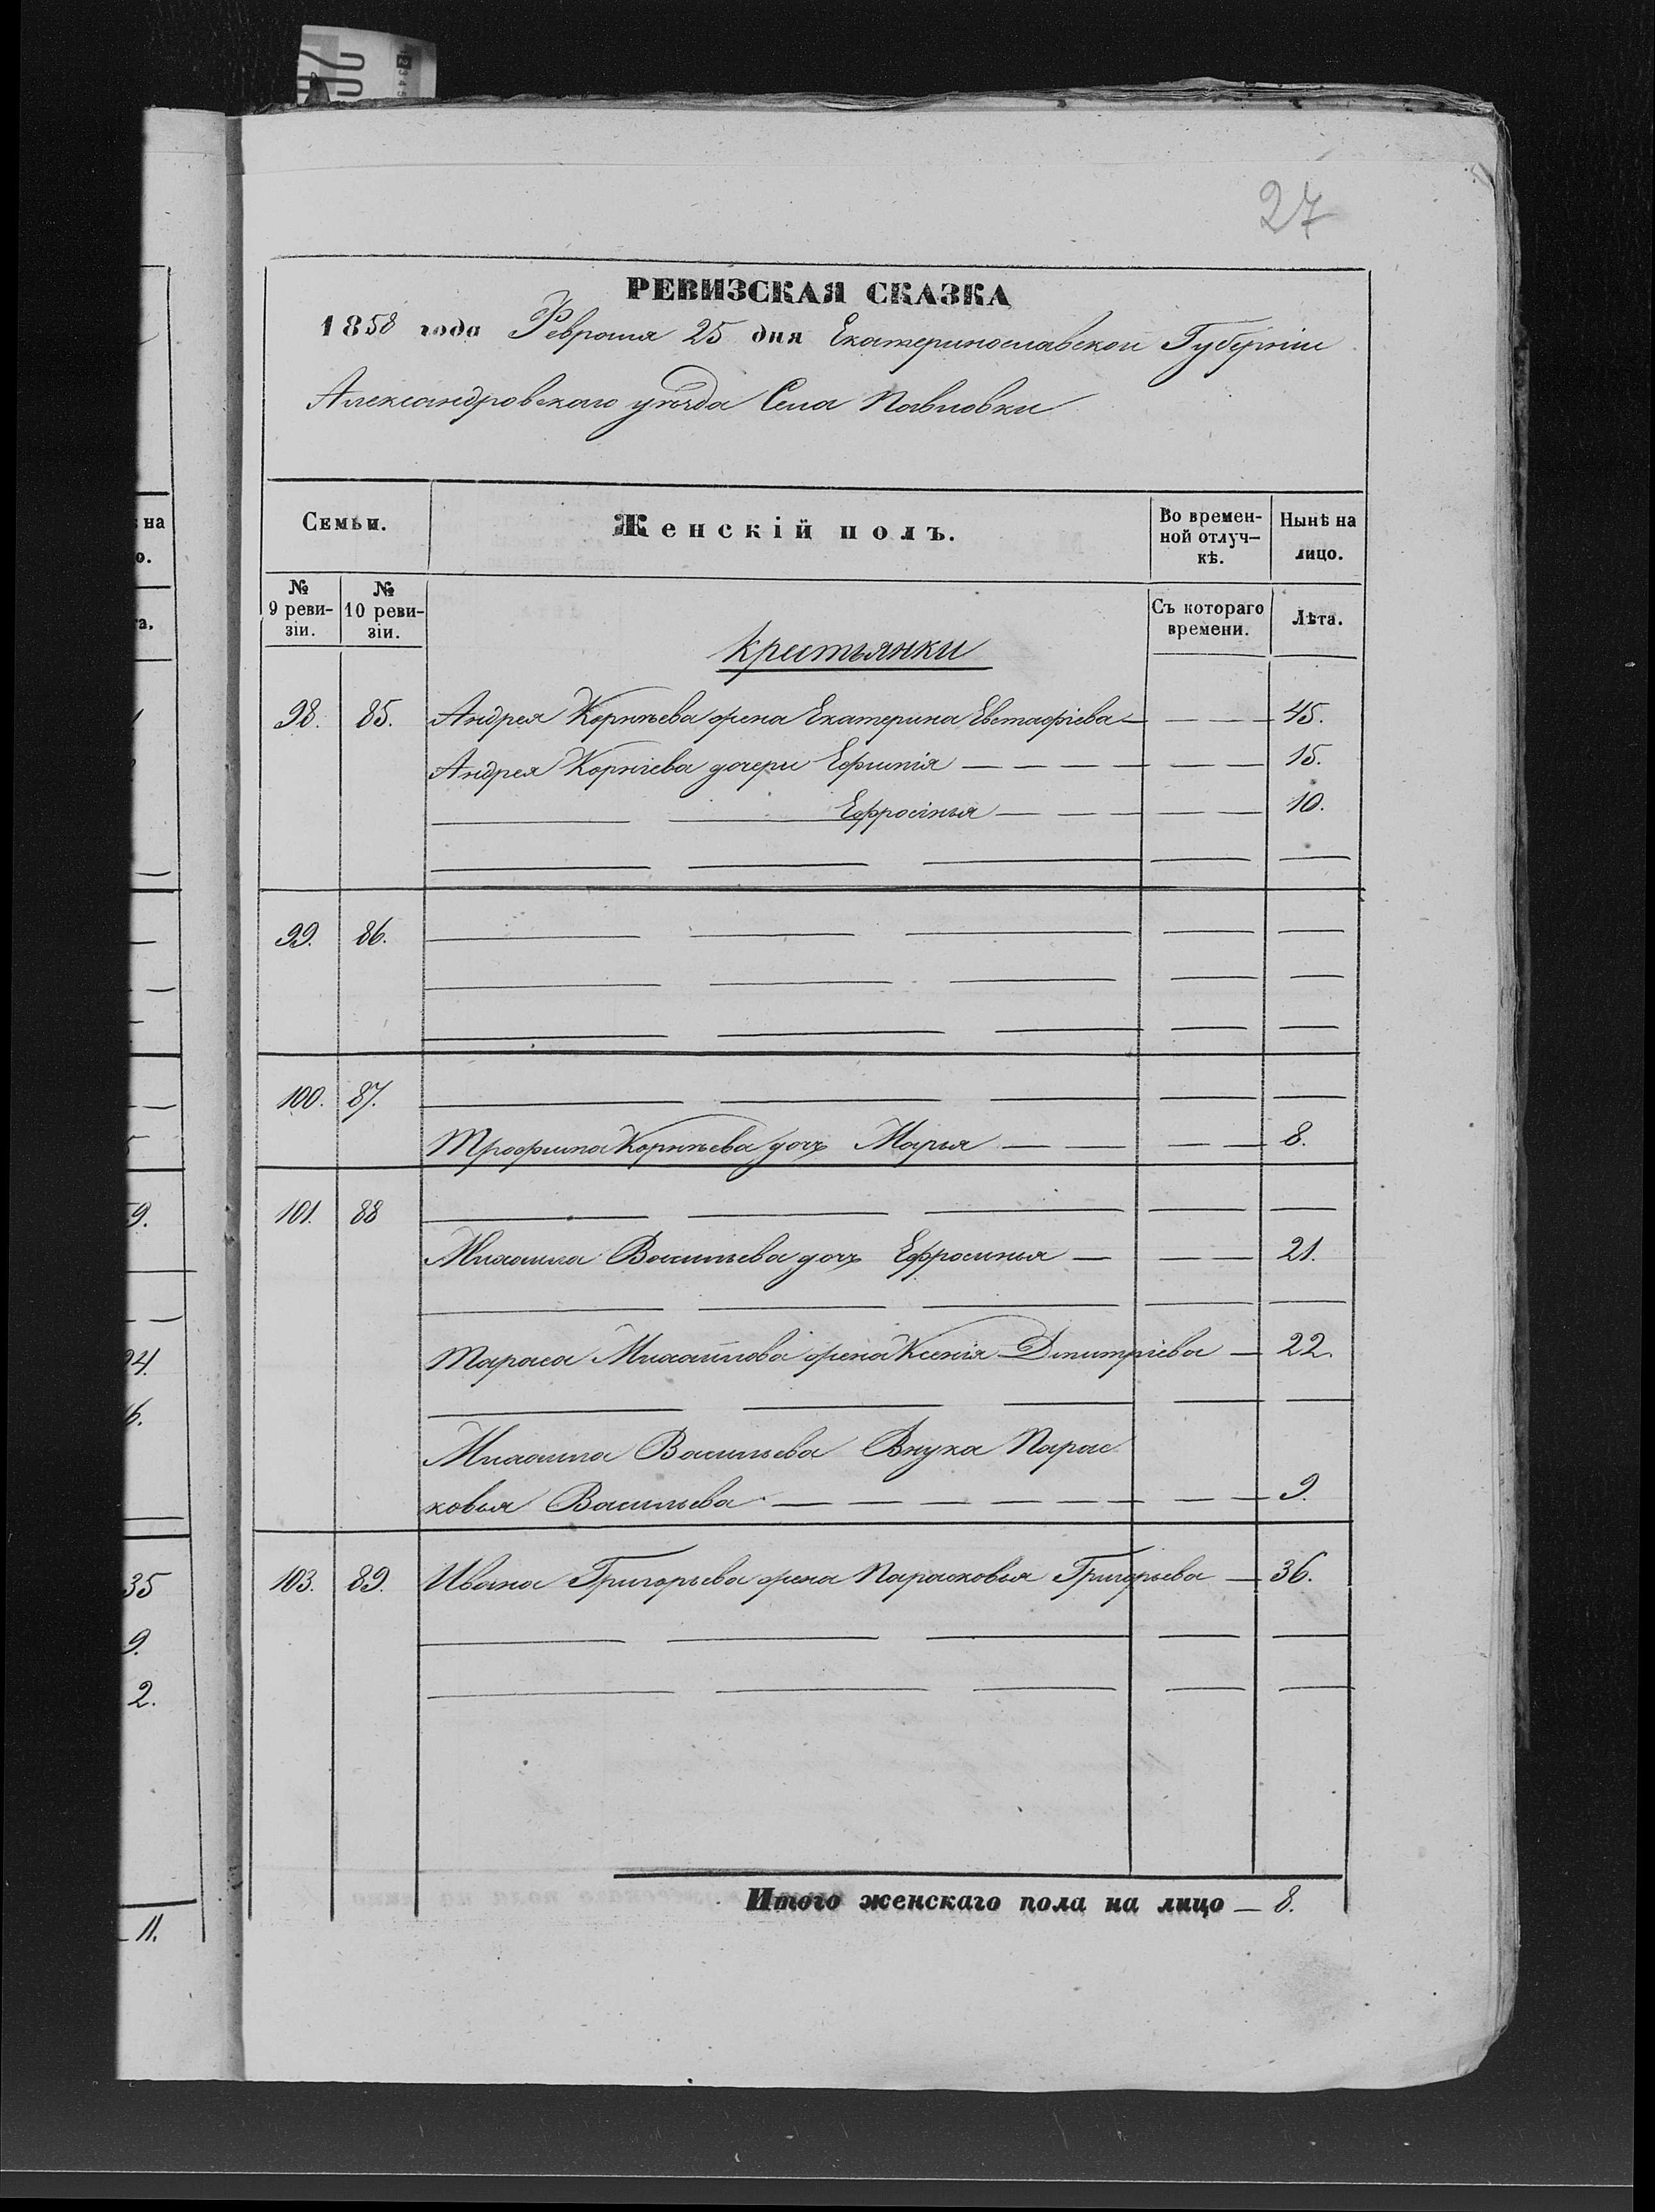 27
РЕВИЗСКАЯ СКАЗКА
1858 года Февраля 25 дня Екатеринославской Губерніи
Александровскаго уѣзда Села Павловки
Семьи.
Женскій полъ.
Во времен-
ной отлуч-
кѣ.
Нынѣ на
лицо.
№
9 реви-
зіи.
№
10 реви-
зіи.
Съ котораго
времени.
Лѣта.
Крестьянки
98. 85. Андрея Корнѣева жена Екатерина Евстафіева — — — 45.
Андрея Корнѣева дочери Ефимія — — — — — — 15.
Ефросінья — — — — — 10.
99. 86.
100. 87.
Трофима Корнѣева дочь Марья — — — — 8.
101. 88
Михаила Васильева дочь Ефросинья — — — 21.
Тараса Михайлова жена Ксенія Дмитріева — 22.
Михаила Васильева Внука Парас
ковья Васильева — — — — — — — — — 9.
103. 89. Ивана Григорьева жена Парасковья Григорьева — 36.
Итого женскаго пола на лицо — 8.
на
о.
а.
9.
24.
6.
35
9.
2.
11.